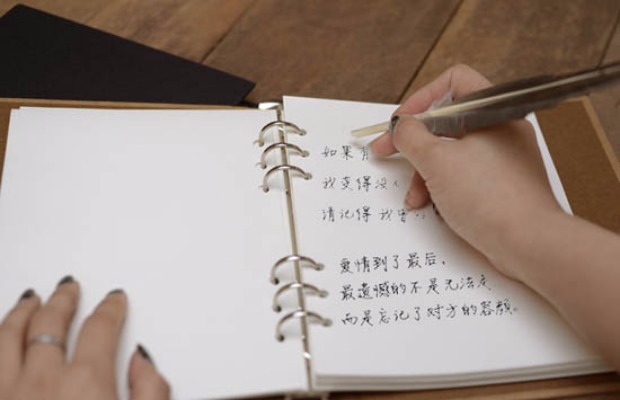 如果有
我变得没
请记得我曾
爱情到了最后，
最遗憾的不是无法
而是忘记了对方的容颜。